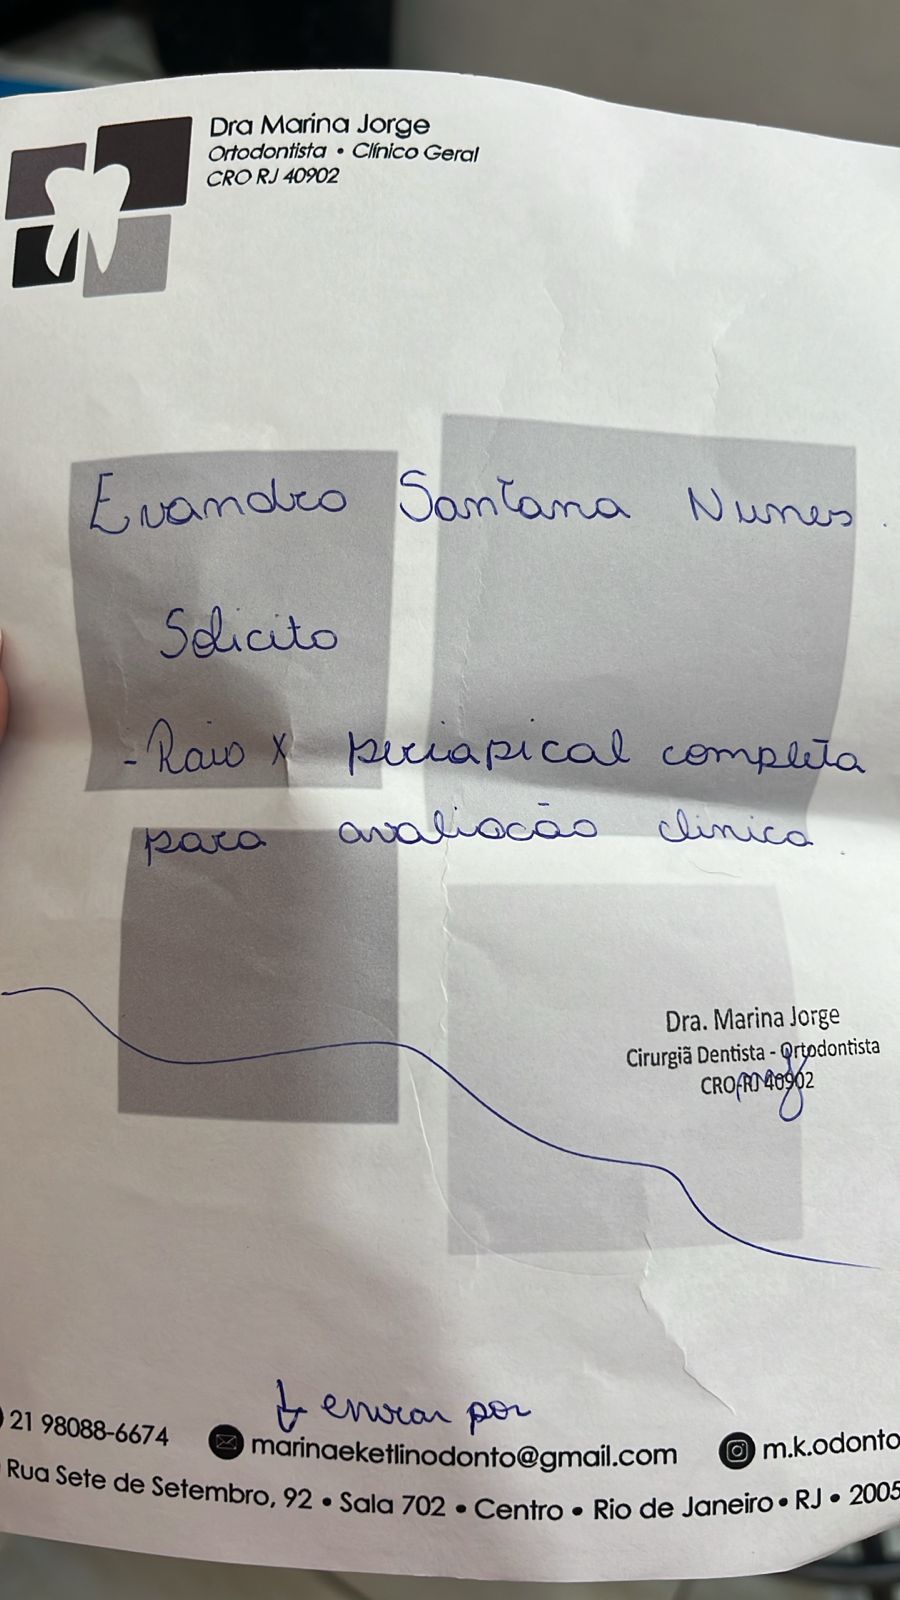 Dra Marina Jorge
Ortodontista • Clínico Geral
CRO RJ 40902
Evandro Santana Nunes.
Solicito
- Raio X periapical completa
para avaliacão clinica.
Dra. Marina Jorge
Cirurgiã Dentista - Ortodontista
CRO-RJ 40902
↓ enviar por
21 98088-6674 marinaeketlinodonto@gmail.com m.k.odonto
Rua Sete de Setembro, 92 • Sala 702 • Centro • Rio de Janeiro • RJ • 2005